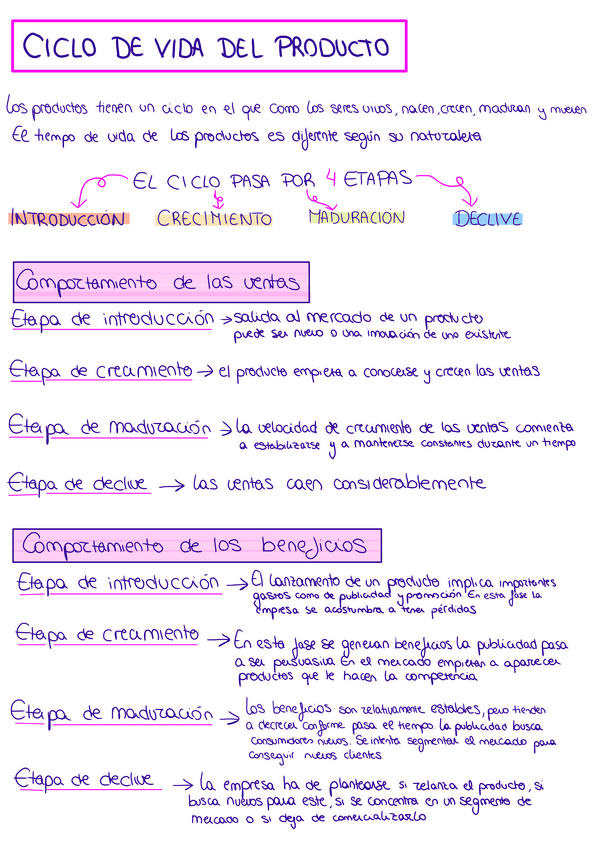 CICLO DE VIDA DEL PRODUCTO
Los productos tienen un ciclo en el que como los seres vivos, nacen, crecen, maduran y mueren
El tiempo de vida de los productos es diferente según su naturaleza
EL CICLO PASA POR 4 ETAPAS
INTRODUCCIÓN CRECIMIENTO MADURACIÓN DECLIVE
Comportamiento de las ventas
Etapa de introducción → salida al mercado de un producto
puede ser nuevo o una innovación de uno existente
Etapa de creamiento → el producto empieza a conocerse y crecen las ventas
Etapa de maduración → La velocidad de crecimiento de las ventas comienza
a estabilizarse y a mantenerse constantes durante un tiempo
Etapa de declive → Las ventas caen considerablemente
Comportamiento de los beneficios
Etapa de introducción → El lanzamiento de un producto implica importantes
gastos como de publicidad y promoción En esta fase la
empresa se acostumbra a tener pérdidas
Etapa de creamiento → En esta fase se generan beneficios la publicidad pasa
a ser persuasiva En el mercado empiezan a aparecer
productos que le hacen la competencia
Etapa de maduración → Los beneficios son relativamente estables, pero tienden
a decrecer conforme pasa el tiempo la publicidad busca
consumidores nuevos. Se intenta segmentar el mercado para
conseguir nuevos clientes
Etapa de declive → La empresa ha de plantearse si relanza el producto, si
busca nuevos para este, si se concentra en un segmento de
mercado o si deja de comercializarlo